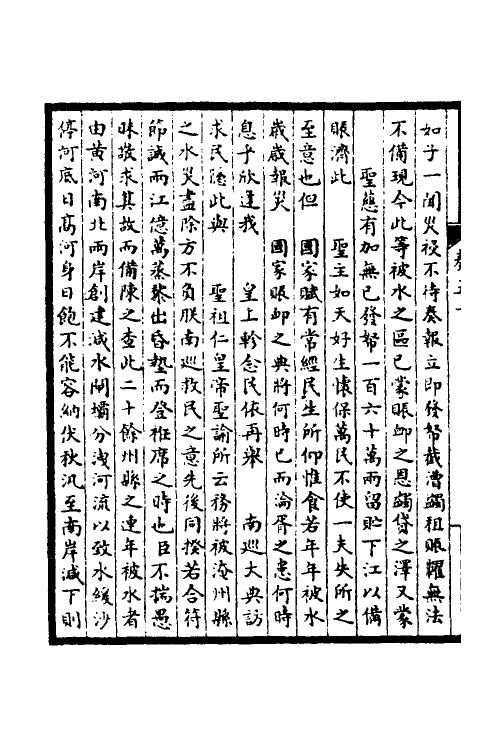 如子一聞災祲不待奏報立即發帑截漕蠲租賑糶無法
不備現今此等被水之區已蒙賑卹之恩蠲貸之澤又蒙
聖慈有加無已發帑一百六十萬兩留貯下江以備
賑濟此 聖主如天好生懷保萬民不使一夫失所之
至意也但 國家賦有常經民生所仰惟食若年年被水
歲歲報災 國家賑卹之典將何時已而淪胥之患何時
息乎欣逢我 皇上軫念民依再舉 南巡大典訪
求民隱此與 聖祖仁皇帝聖諭所云務將被淹州縣
之水災盡除方不負朕南巡救民之意先後同揆若合符
節誠兩江億萬蒸黎出昏墊而登袵席之時也臣不揣愚
昧敬求其故而備陳之查此二十餘州縣之連年被水者
由黃河南北兩岸創建減水閘壩分洩河流以致水緩沙
停河底日高河身日飽不能容納伏秋汛至南岸減下則